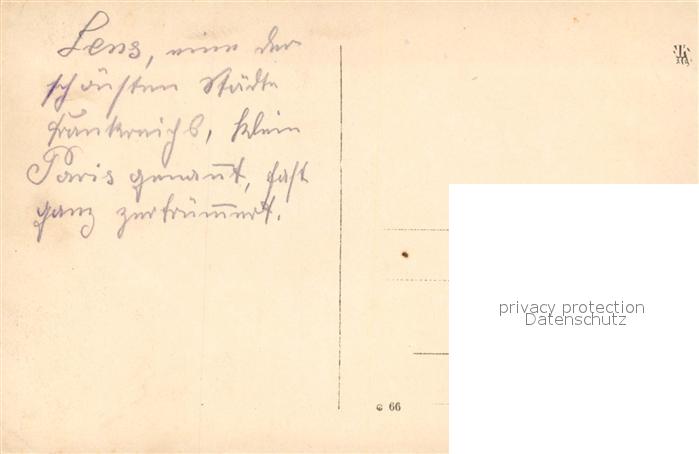 Lens, eine der
schönsten Städte
Frankreichs, klein
Paris genannt, fast
ganz zertrümmert.
privacy protection
Datenschutz
66